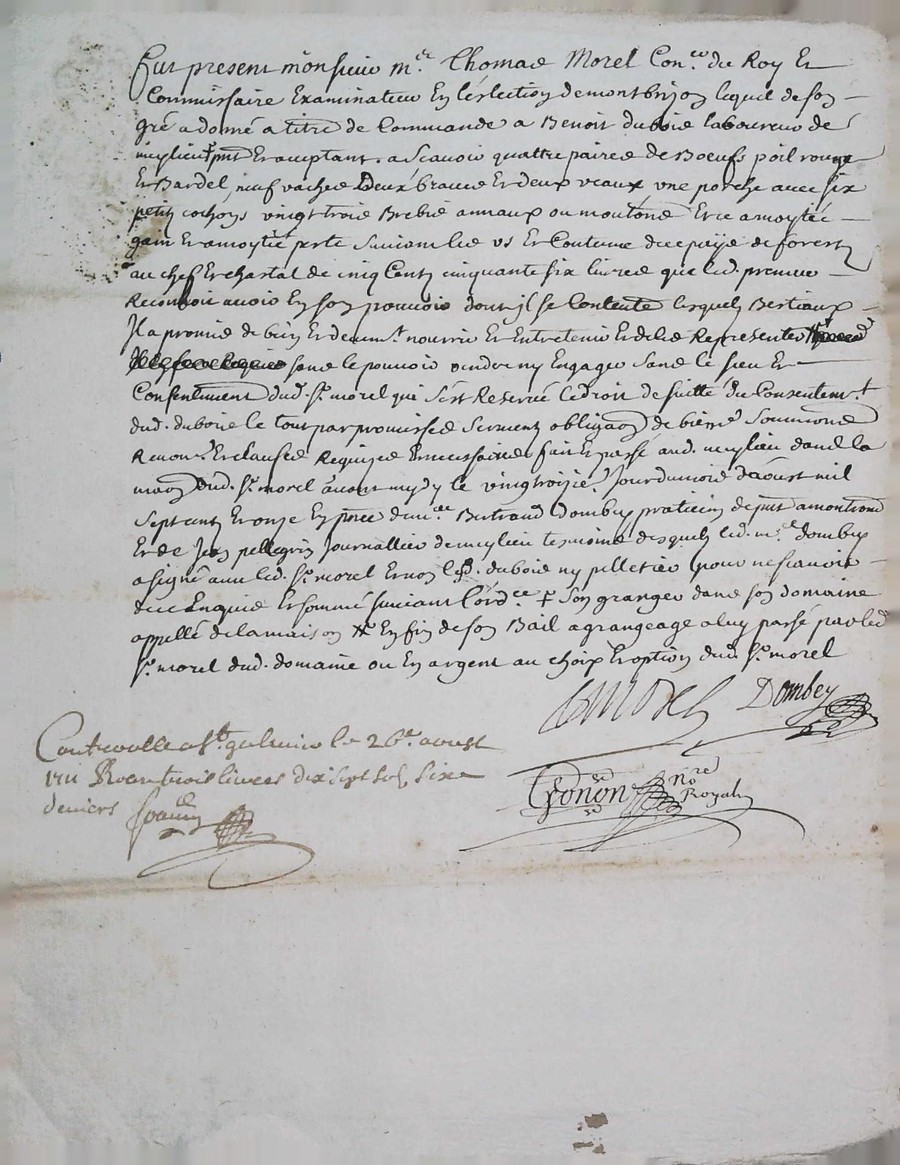 Fut present monsieur m.e Thomas Morel Con.er du Roy Et
Commissaire Examinateur En L'eslection de montbrison lequel de son
gré a donné a titre de Commande a Benoit dubois laboureur de
meylieu + pnt Et acceptant. a Scavoir quattre paires de Boeufs poil rouge
Et Bardel, neuf vaches Deux braues Et deux veaux une porche avec six
petits cochons vingt trois Brebis annaux ou moutons Et ce a moytié
gain Et a moytié perte Suivant les us Et Coutume du paÿs de forests
au chef Et chastal de cinq Cents cinquante six livres que led. preneur
Reconnoit avoir En son pouvoir dont jl se Contente lesquels Bestiaux
Jl a promis de bien Et deuem.t nourrir Et Entretenir Et de les Representer
sans le pouvoir vendre ny Engager Sans le sceu Et
Consentement dud. s.r morel qui s'est Reservé le droit de suitte du Consentem.t
dud. dubois le tout par promesses serment obligaon de biens Soumissions
Renon.on Et clauses Requises Et necessaires fait Et passé aud. meylieu dans la
maon dud. s.r morel avant mydy le vingtroizie.e Jour du mois d'aoust mil
Sept cents Et onze En pnce de m.e Bertrand Dombey praticien de pnt a montrond
Et de Jean pellegrin Journallier de meylieu tesmoins desquels led. m.e dombey
a signé avec led. s.r morel Et non led. dubois ny pelletier pour ne scavoir
de ce Enquis Et sommé suivant l'ord.ce + Son granger dans son domaine
appellé de la maison # En fin de son Bail a grangeage a luy passé par led
s.r morel dud. domaine ou En argent au choix Et option dud. s.r morel
Morel Dombey
Gonon n.re Royal
Controolle a s.t galmier le 26.e aoust
1711 R trois livres dix sept sols six
deniers